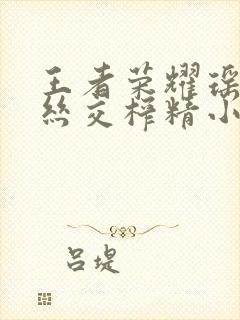 王者荣耀瑶
丝交榨精小
吕堤